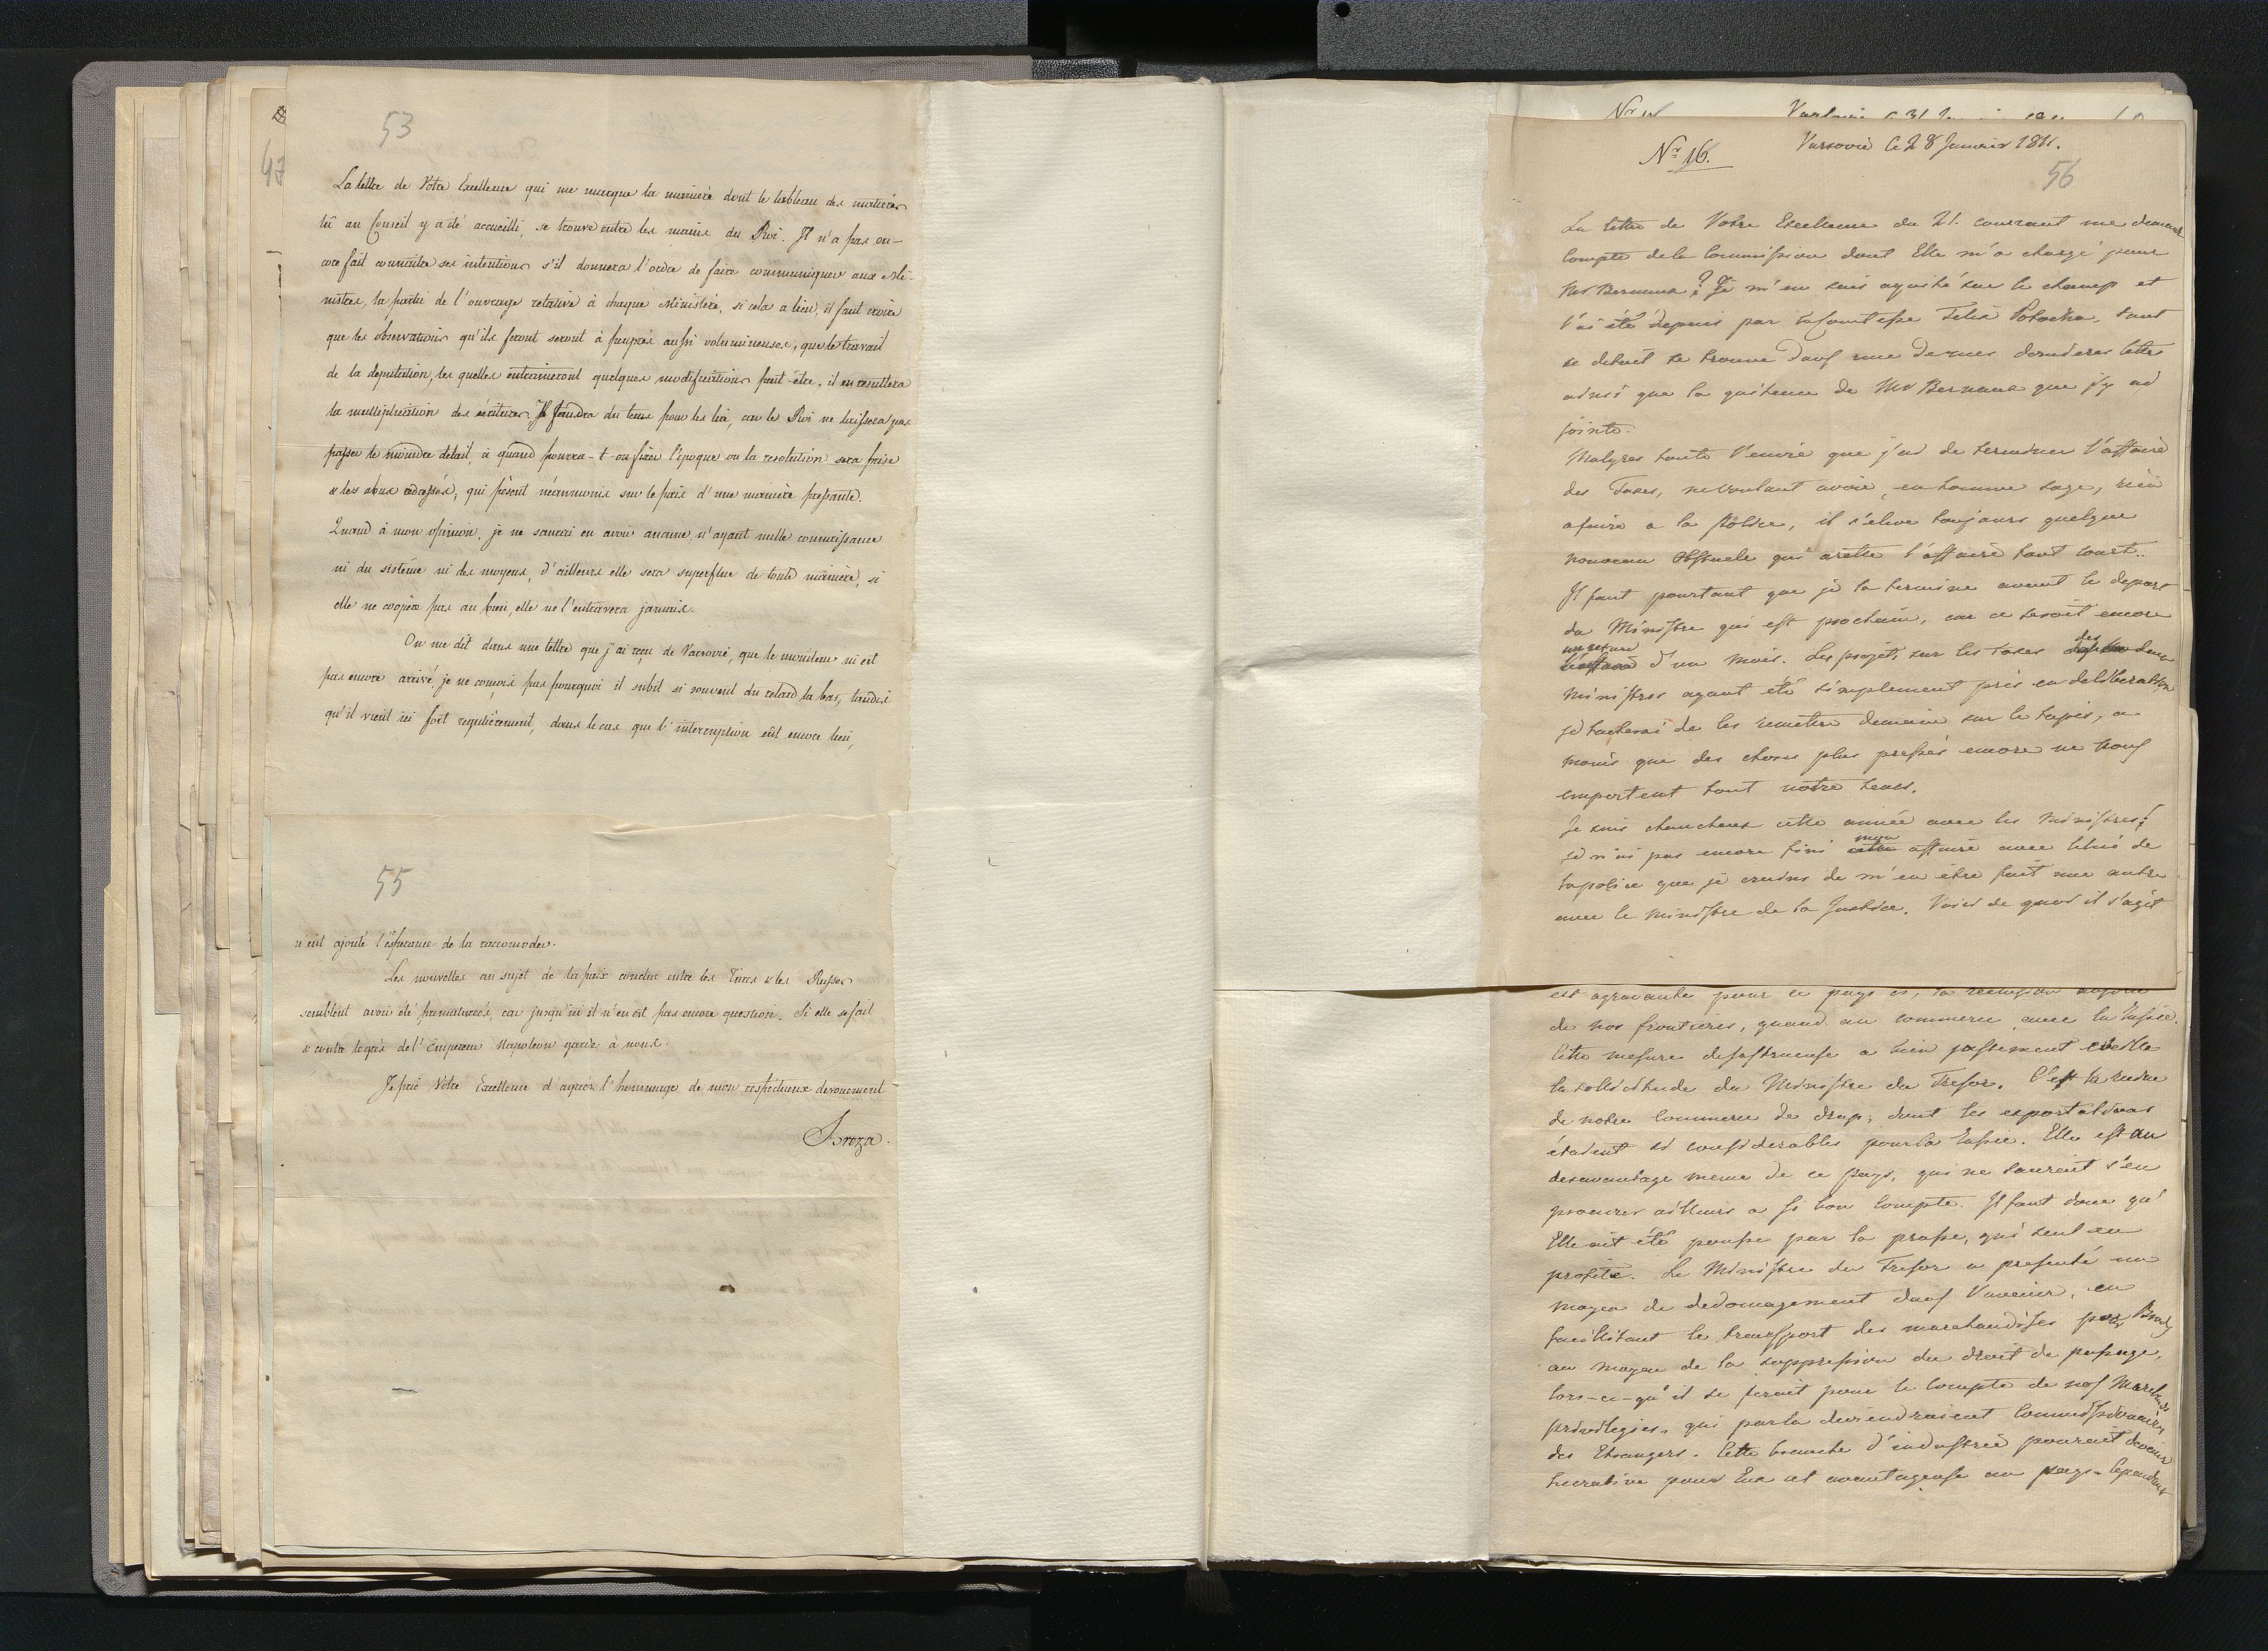 53
47
La lettre de Votre Excellence qui me marque la manière dont le tableau des matières
lû au Conseil y a été accueilli, se trouve entre les mains du Roi. Il n'a pas en-
core fait connaitre ses intentions s'il donnera l'ordre de faire communiquer aux Mi-
nistres, la partie de l'ouvrage relative à chaque Ministère, si cela a lieu, il faut croire
que les observations qu'ils feront seront à peuprès aussi volumineuses, que le travail
de la deputation, les quelles entraineront quelques modifications peut-être, il en resultera
la multiplication des écritures. Il faudra du tems pour les lire, car le Roi ne laissera pas
passer le moindre détail, à quand pourra-t-on fixer l'époque ou la resolution sera prise
& les abus redressés, qui pèsent néanmoins sur le païs d'une manière pressante.
Quand à mon opinion, je ne saurai en avoir aucune, n'ayant nulle connaissance
ni du sistème ni des moyens, d'ailleurs elle sera superflue de toute manière, si
elle ne coopère pas au bien, elle ne l'entravera jamais.
On me dit dans une lettre que j'ai reçu de Varsovie, que le moniteur ni est
pas encore arrivé, je ne conçois pas pourquoi il subit si souvent du retard la bas, tandis
qu'il vient ici fort regulièrement, dans le cas que l'interruption eût encore lieu,
55
n'eût ajouté l'ésperance de la raccomoder.
Les nouvelles au sujet de la paix conclue entre les Turcs & les Russes
semblent avoir été prematurées, car jusqu'ici il n'en est pas encore question. Si elle se fait
& contre le grés de l'Empereur Napoleon garre à nous.
Je prie Votre Excellence d'agréer l'hommage de mon respectueux devouement
Breza.
Nr. 16.
Varsovie le 28 Janvier 1811.
56
La lettre de Votre Excellence du 21. courrant me demande
compte de la Commission dont Elle m'a chargé pour
Mr Bernaux? Je m'en suis aquité sur le champ et
l'ai été depuis par la Comtesse Felix Potocka, tout
ce detail se trouve dans une de mes dernieres lettre
ainsi que la quitence de Mr Bernaux que j'y ai
jointe.
Malgres toute l'envie que j'ai de terminer l'affaire
des Taxes, ne voulant avoir, en homme sage, rien
afaire a la Police, il s'eleve toujours quelque
nouveau obstacle qui arette l'affaire tout court..
Il faut pourtant que je la termine avent le depart
du Ministre qui est prochain, car ce seroit encore
un retard
d'un mois. Les projets sur les taxes des deux
Ministres ayant été simplement pris en deliberation
je tacherai de les remettre demain sur le tapis, a
moins que des choses plus pressés encore ne nous
emportent tout notre tems.
Je suis chancheux cette année avec les Ministres!
je n'ai pas encore fini mon affaire avec celui de
la police que je crains de m'en être fait une autre
avec le Ministre de la Justice. Voici de quoi il s'agit
est agravante pour ce pays ci,
de nos frontieres, quand au commerce avec la Russie.
Cette mesure desastreuse a bien justement eveillé
la sollicitude du Ministre du Tresor. C'est la ruine
de notre Commerce de drap, dont les exportations
étaient si considerables pour la Russie. Elle est au
desavantage meme de ce pays, qui ne sauroit s'en
procurer ailleurs a si bon compte. Il faut donc qu'
Elle ait été pousse par la Prusse, qui seul en
profite. Le Ministre du Tresor a presenté un
moyen de dedomagement dans l'avenir, en
facilitant le transport des marchandises par Brody
au moyen de la suppression du droit de passage,
lors-ce-qu'il se feroit pour le compte de nos Marchands
privilegiés, qui parla deviendraient Commissionaires
des Etrangers. Cette branche d'industrie pourroit devenir
lucrative pour Eux et avantageuse au pays. Cependant